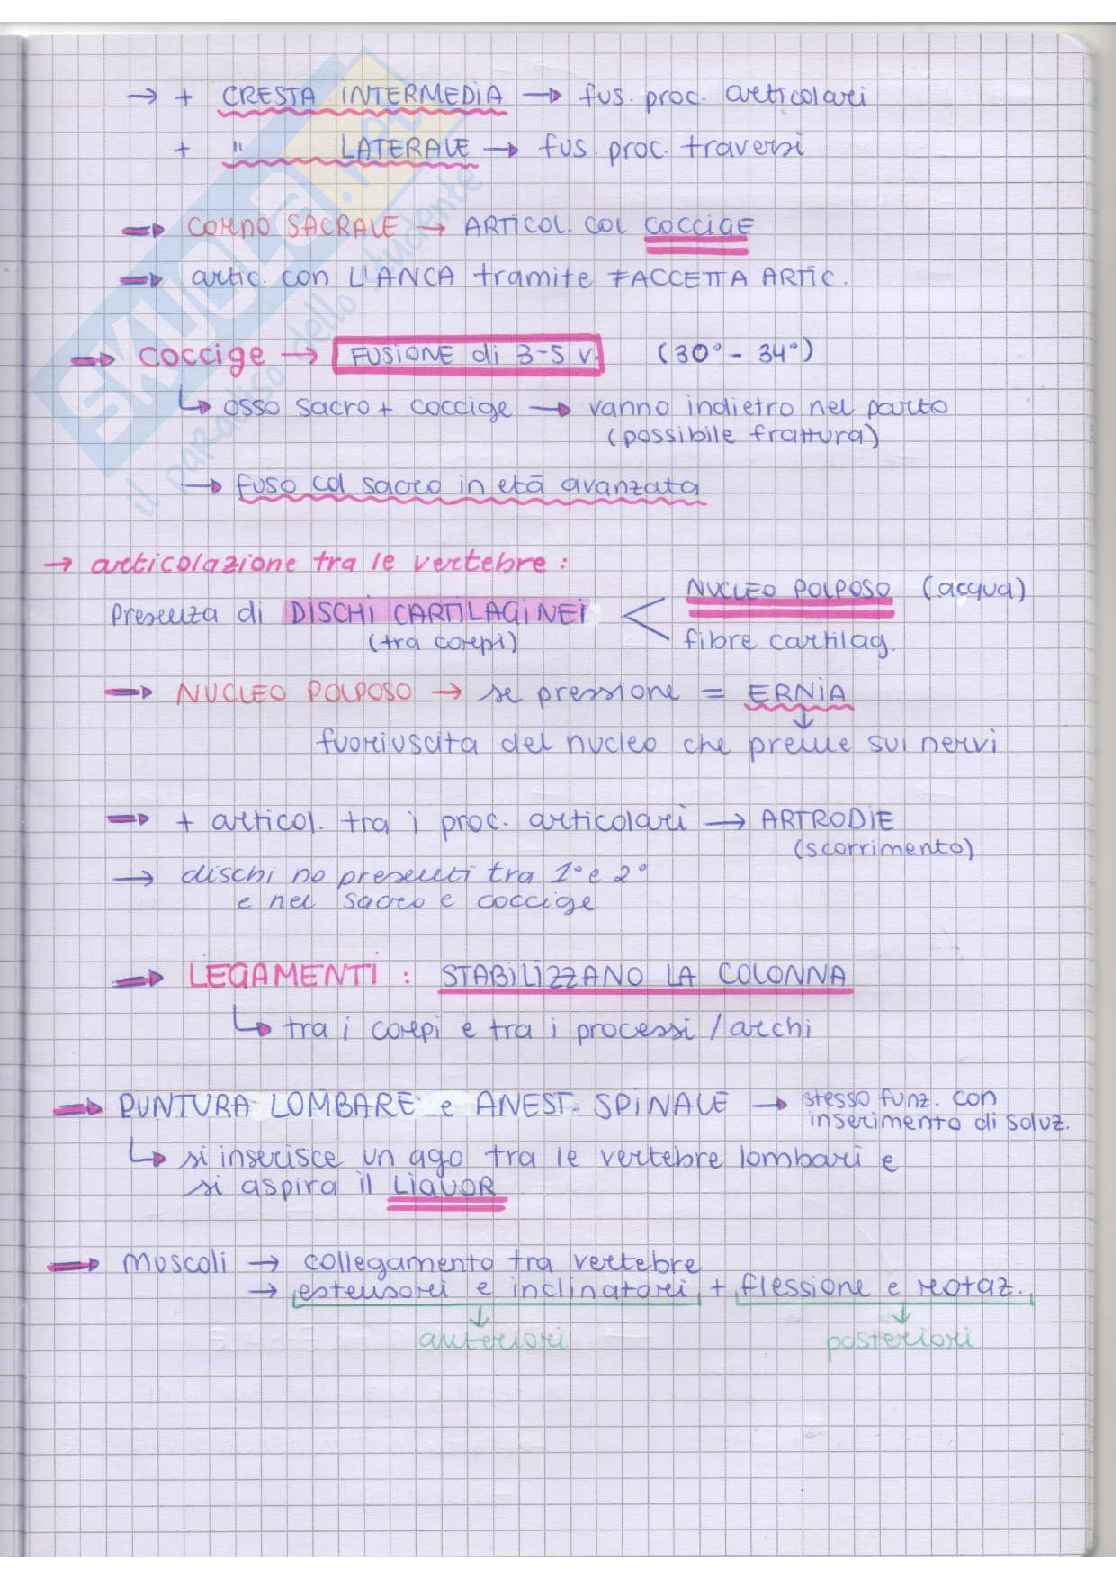 → + CRESTA INTERMEDIA → fus. proc. articolari
+ " LATERALE → fus. proc. traversi
⇒ CORNO SACRALE → ARTICOL. COL COCCIGE
⇒ artic. con L'ANCA tramite FACCETTA ARTIC.
⇒ coccige → FUSIONE di 3-5 v. (30° - 34°)
↳ osso sacro + coccige → vanno indietro nel parto
(possibile frattura)
→ fuso col sacro in età avanzata
→ articolazione tra le vertebre :
Presenza di DISCHI CARTILAGINEI < NUCLEO POLPOSO (acqua)
(tra corpi) fibre cartilag.
⇒ NUCLEO POLPOSO → se pressione = ERNIA
↓
fuoriuscita del nucleo che preme sui nervi
⇒ + articol. tra i proc. articolari → ARTRODIE
(scorrimento)
→ dischi no presenti tra 1° e 2°
e nel sacro e coccige
⇒ LEGAMENTI : STABILIZZANO LA COLONNA
↳ tra i corpi e tra i processi / archi
⇒ PUNTURA LOMBARE e ANEST. SPINALE → stesso funz. con
inserimento di soluz.
↳ si inserisce un ago tra le vertebre lombari e
si aspira il LIQUOR
⇒ Muscoli → collegamento tra vertebre
→ estensori e inclinatori + flessione e rotaz.
↓ ↓
anteriori posteriori
SKUOLA.net
il paradiso dello studente